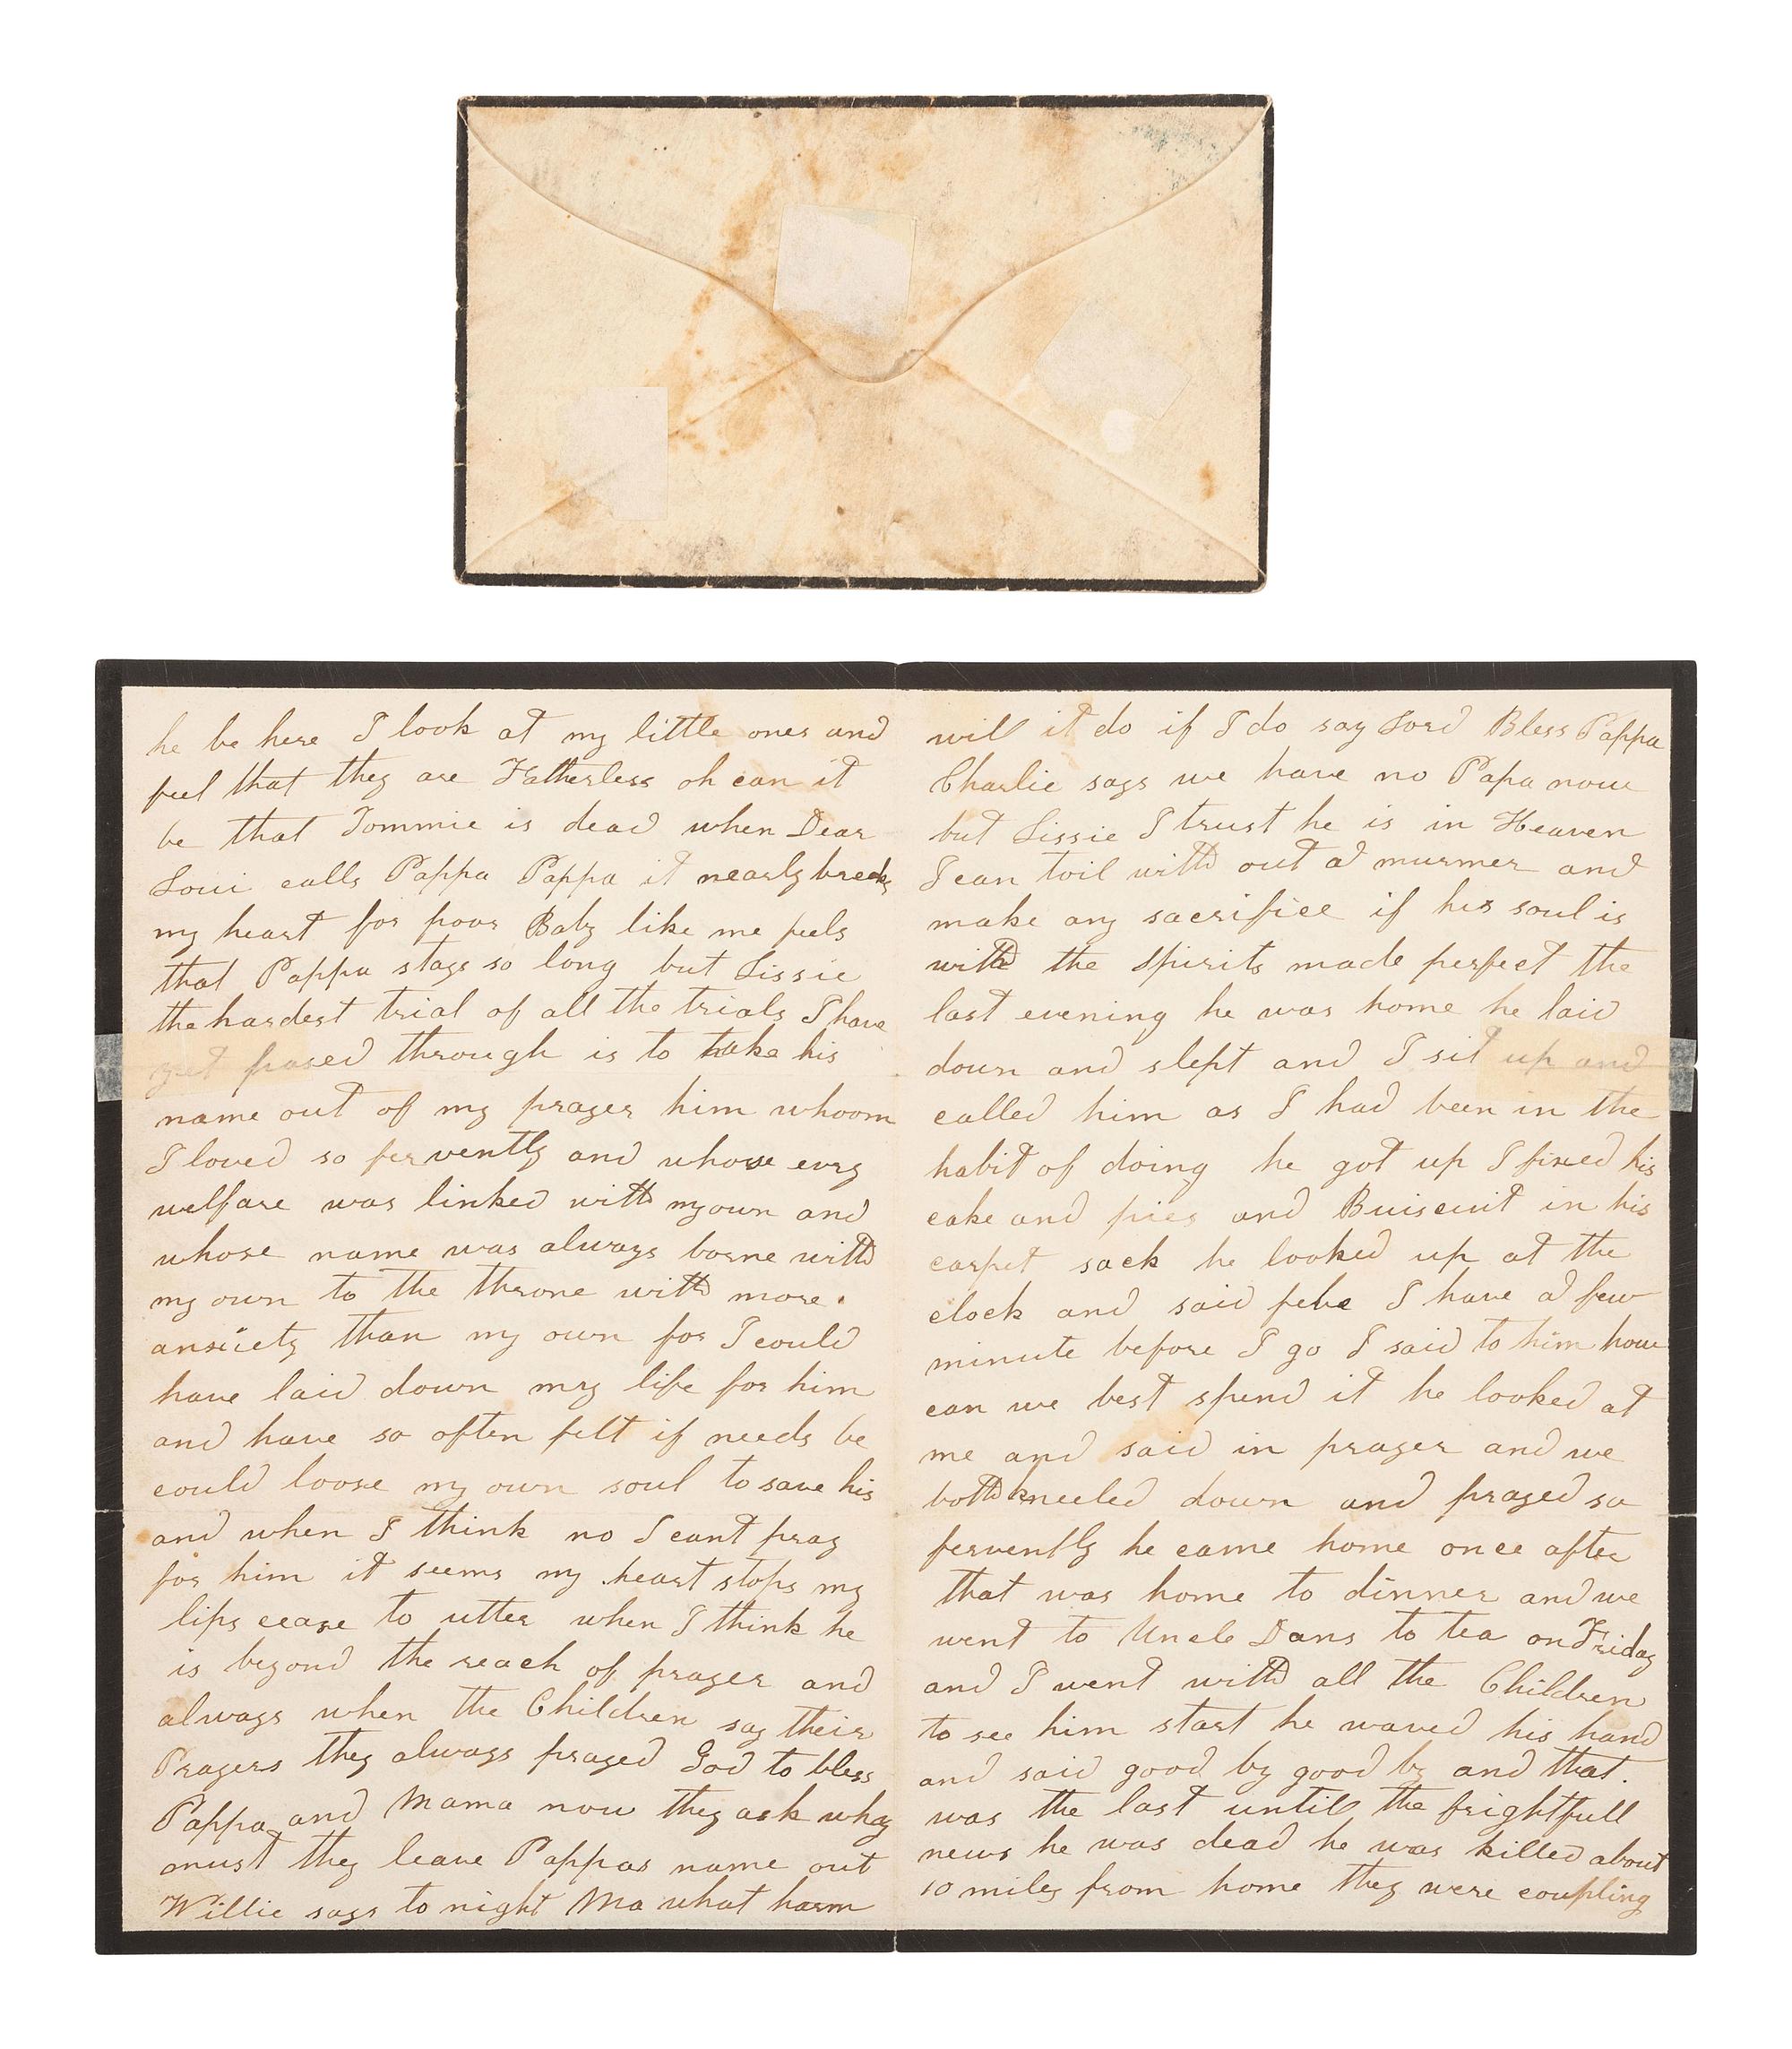 he be here I look at my little ones and
feel that they are Fatherless oh can it
be that Tommie is dead when Dear
Loui calls Pappa Pappa it nearly breaks
my heart for poor Baby like me feels
that Pappa stays so long but Lissie
the hardest trial of all the trials I have
yet passed through is to take his
name out of my prayer him whoom
I loved so fervently and whose evry
welfare was linked with my own and
whose name was always borne with
my own to the throne with more
anxiety than my own for I could
have laid down my life for him
and have so often felt if needs be
could loose my own soul to save his
and when I think no I cant pray
for him it seems my heart stops my
lips cease to utter when I think he
is beyond the reach of prayer and
always when the Children say their
Prayers they always prayed God to bless
Pappa and Mama now they ask why
must they leave Pappas name out
Willie says to night Ma what harm
will it do if I do say Lord Bless Pappa
Charlie says we have no Papa now
but Lissie I trust he is in Heaven
I can toil with out a murmer and
make any sacrifice if his soul is
with the Spirits made perfect the
last evening he was home he laid
down and slept and I sit up and
called him as I had been in the
habit of doing he got up I fixed his
cake and pies and Buiscuit in his
carpet sack he looked up at the
clock and said I have a few
minute before I go I said to him how
can we best spend it he looked at
me and said in prayer and we
both kneeled down and prayed so
fervently he came home once after
that was home to dinner and we
went to Uncle Dans to tea on Friday
and I went with all the Children
to see him start he waved his hand
and said good by good by and that.
was the last untill the frightfull
news he was dead he was killed about
10 miles from home they were coupling